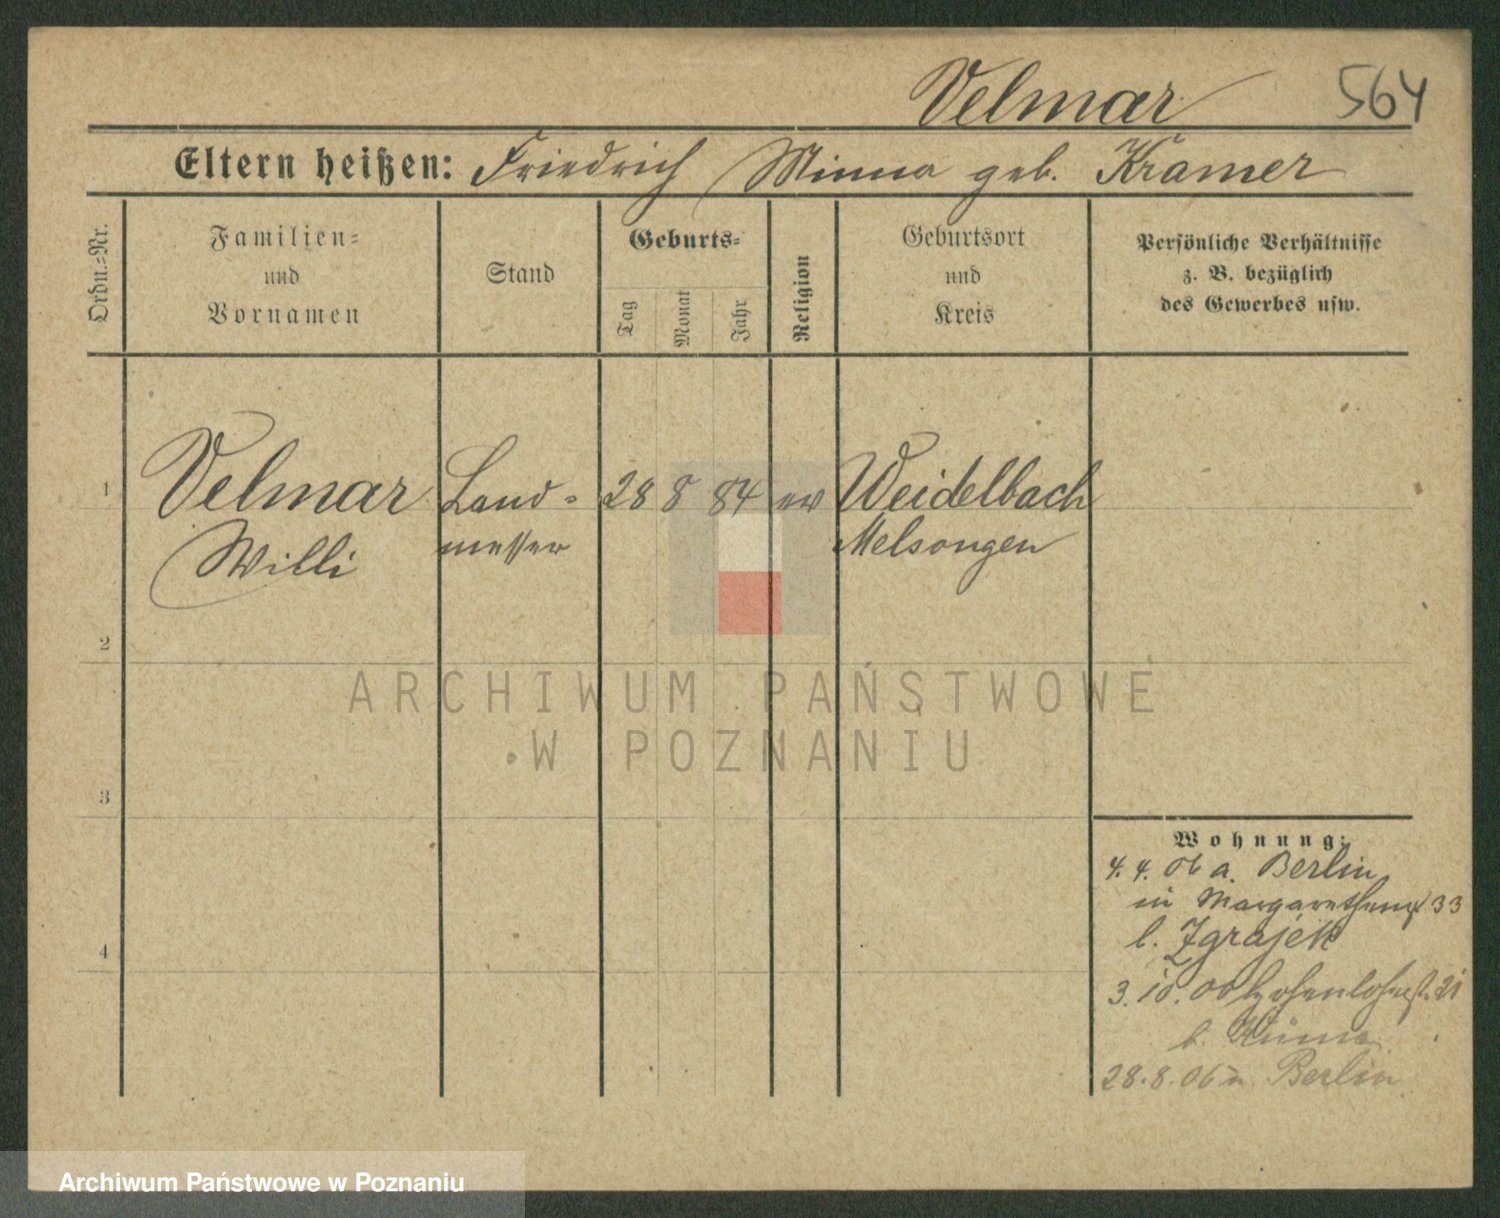 Velmar
564
Eltern heißen: Friedrich Minna geb. Kramer
Ordn.=Nr.
Familien=
und
Vornamen
Stand
Geburts=
Tag
Monat
Jahr
Religion
Geburtsort
und
Kreis
Persönliche Verhältnisse
z. B. bezüglich
des Gewerbes usw.
1
Velmar
Willi
Land=
messer
28 8 84
ev
Weidelbach
Melsungen
2
3
4
Wohnung:
4. 4. 06 a. Berlin
in Margarethenst 33
b. Zgrajek
3. 10. 06 Hohenlohest. 21
b.
28.8.06 n. Berlin
ARCHIWUM PAŃSTWOWE
W POZNANIU
Archiwum Państwowe w Poznaniu